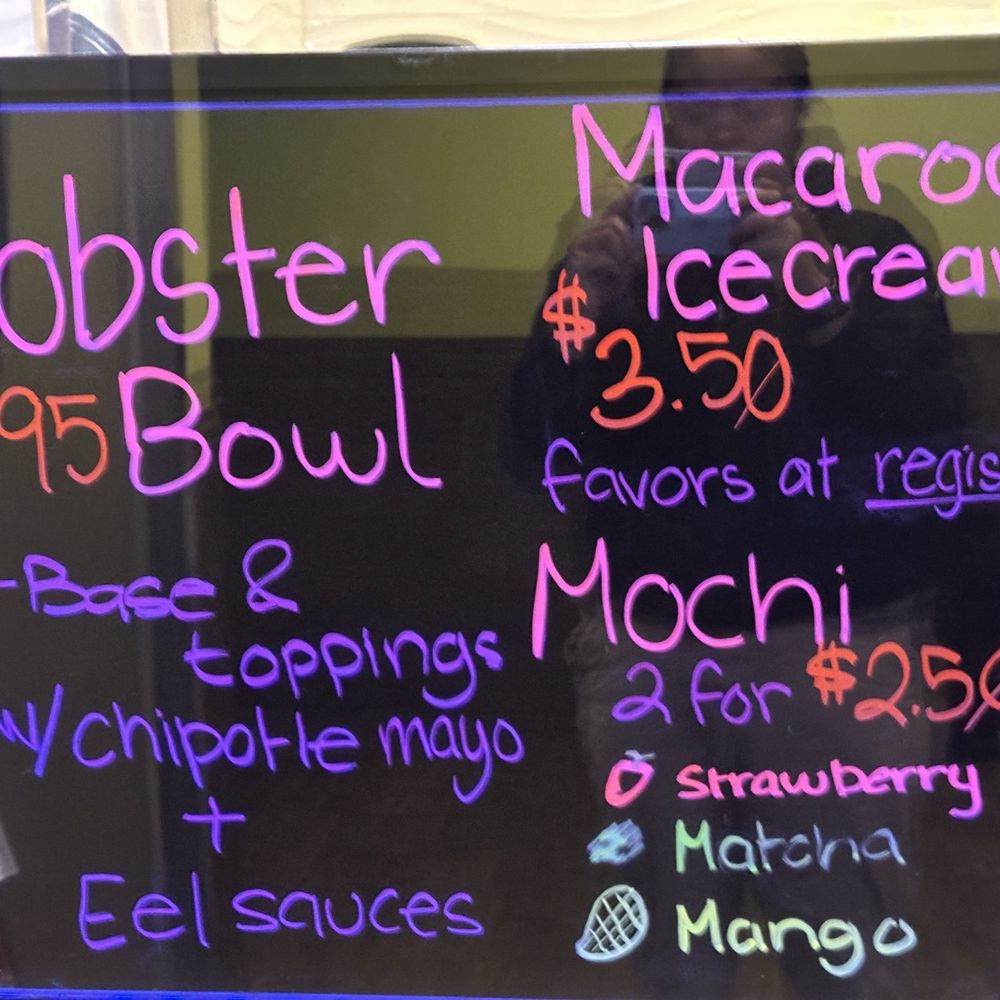 obster
95 Bowl
-Base &
toppings
w/chipotle mayo
+
Eel sauces
Macaroo
Icecream
$3.50
favors at regis
Mochi
2 for $2.50
Strawberry
Matcha
Mango